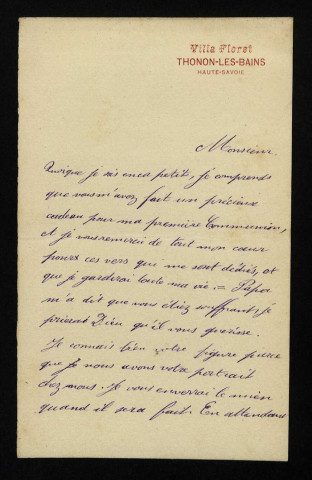 Villa Floret
THONON-LES-BAINS
HAUTE-SAVOIE
Monsieur
Quoique je sois encor petit, je comprends
que vous m'avez fait un précieux
cadeau pour ma première Communion,
et je vous remercie de tout mon cœur
pour ces vers que me sont dédiés, et
que je garderai toute ma vie = Papa
m'a dit que vous étiez souffrant, je
prierai Dieu qu'il vous guérisse.
Je connais bien votre figure parce
que je nous avons votre portrait
chez nous. Je vous enverrai le mien
quand il sera fait. En attendant